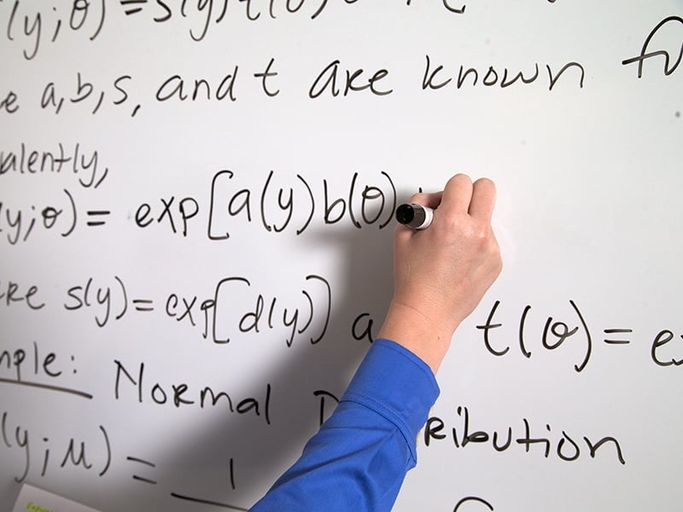 (y;θ) = s(y) t(θ)
e a, b, s, and t are known
alently,
y;θ) = exp[a(y)b(θ)
re s(y) = exp[d(y)] a t(θ) = e
mple: Normal D ribution
(y;μ) = 1